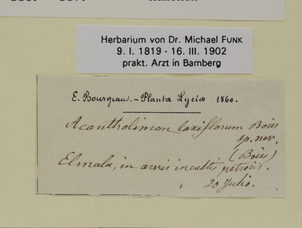 Herbarium von Dr. Michael FUNK
9. I. 1819 - 16. III. 1902
prakt. Arzt in Bamberg
E. Bourgeau. - Plantæ Lyciæ 1860.
Acantholimon laxiflorum Boiss
sp. nov.
(Boiss)
Elmalu, in arvis incultis petrosis.
20 Julio.